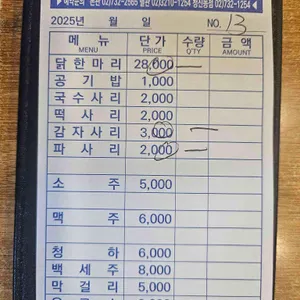 ▶예약문의 본관 02)732-2565 별관 02)3210-1254 청진동점 02)732-1254◀
2025년 월 일 NO. 13
메 뉴 MENU 단 가 PRICE 수량 Q'TY 금 액 AMOUNT
닭한마리 28,000 一
공기밥 1,000
국수사리 2,000
떡사리 2,000
감자사리 3,000 一
파사리 2,000 一
소 주 5,000
맥 주 6,000
청 하 6,000
백세주 8,000
막걸리 5,000